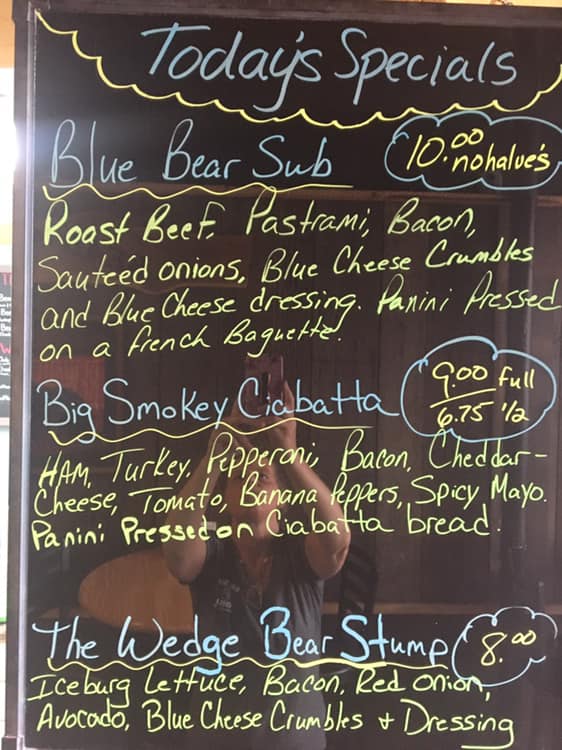 Today's Specials
Blue Bear Sub
10.00 no halve's
Roast Beef, Pastrami, Bacon,
Sauteéd onions, Blue Cheese Crumbles
and Blue Cheese dressing. Panini Pressed
on a french Baguette.
Big Smokey Ciabatta
9.00 full
6.75 1/2
HAM, Turkey, Pepperoni, Bacon, Cheddar-
Cheese, Tomato, Banana Peppers, Spicy Mayo.
Panini Pressed on Ciabatta bread.
The Wedge Bear Stump
8.00
Iceburg Lettuce, Bacon, Red Onion,
Avocado, Blue Cheese Crumbles + Dressing